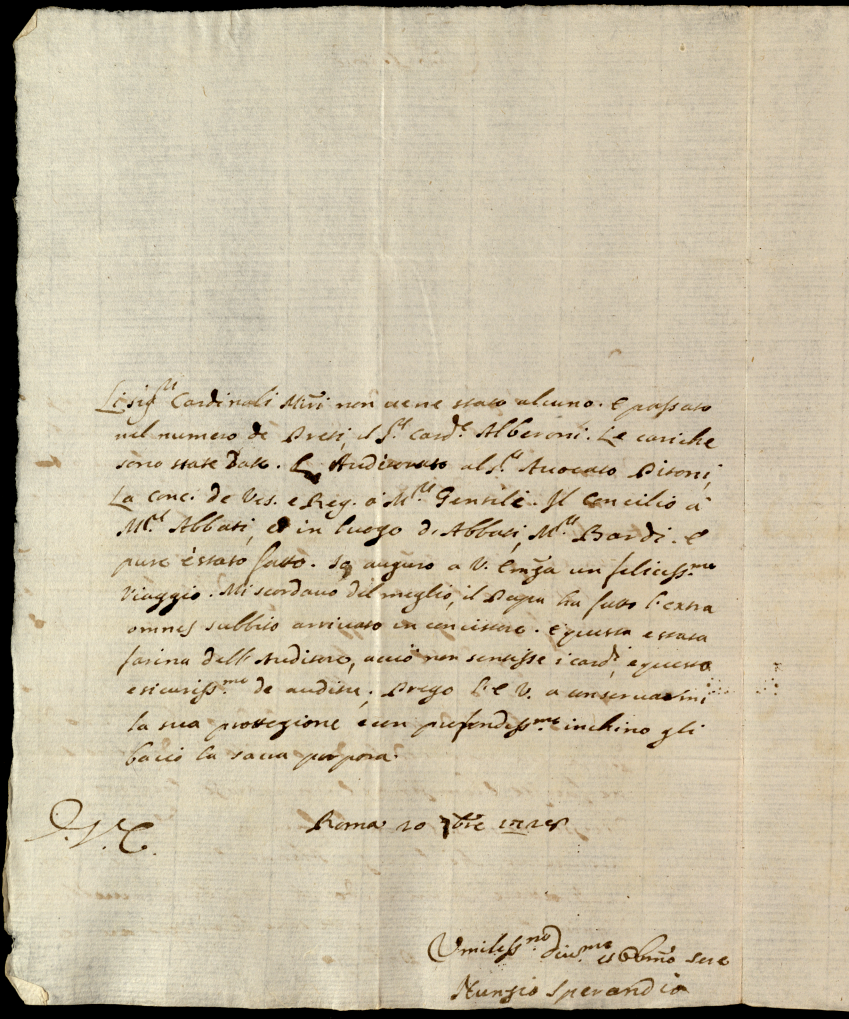 Li sig.ri Cardinali Mrĩ non ve ne stato alcuno. È passato
nel numero de Preti, il S.r Card.e Alberoni. Le cariche
sono state Date. L'Auditorato al S.r Avocato Pitoni,
La Conc. de Ves. e Reg. a M.re Gentile. Il Concilio a
M.re Abbati, et in luogo di Abbati, M.re Bardi. E
pure è stato fatto. Io auguro a V. Emza un feliciss.mo
Viaggio. Mi scordavo del meglio, il Papa ha fatto l'extra
omnes subbito arrivato in concistoro. E questa e stata
farina dell'Auditore, acciò non sentisse i card.i, e questo
e sicuriss.mo de auditu; Prego l'E V. a conservarmi
la sua protezzione e con profondiss.mo inchino gli
bacio la sacra porpora.
Roma 20 7bre
D.V.E.
Umiless.mo Div.mo et Obb̃mo Sere
Nunzio Sperandio